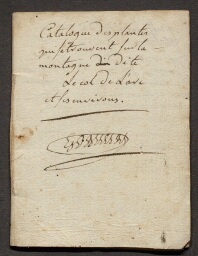 Catalogue des plantes
qui se trouvent sur la
montagne dite
Le col de Lare
et ses environs.